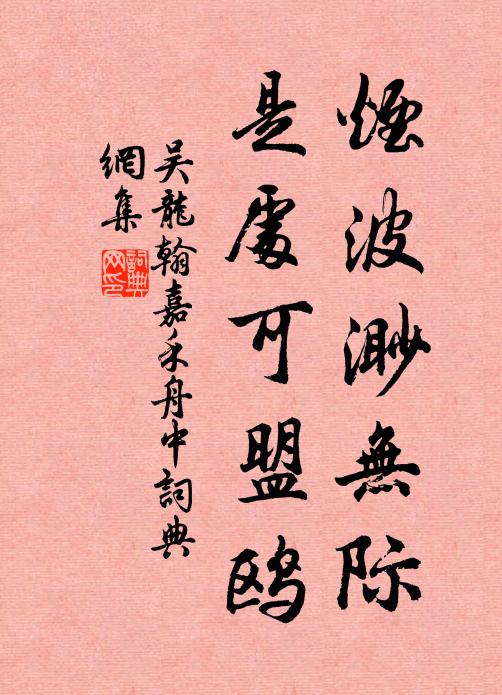 煙波渺無际
是處可盟鸥
吴龍翰嘉禾舟中詞典
網集
詞典
网印